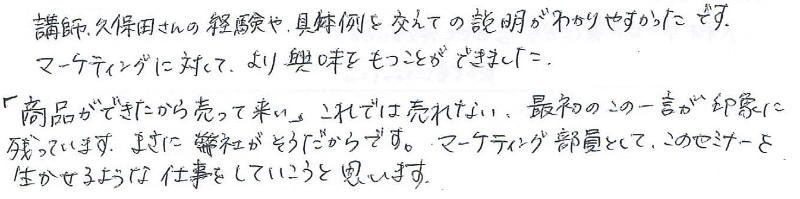 講師、久保田さんの経験や、具体例を交えての説明がわかりやすかったです。
マーケティングに対して、より興味をもつことができました。
「商品ができたから売って来い」これでは売れない、最初のこの一言が印象に
残っています。まさに弊社がそうだからです。マーケティング部員として、このセミナーを
生かせるような仕事をしていこうと思います。